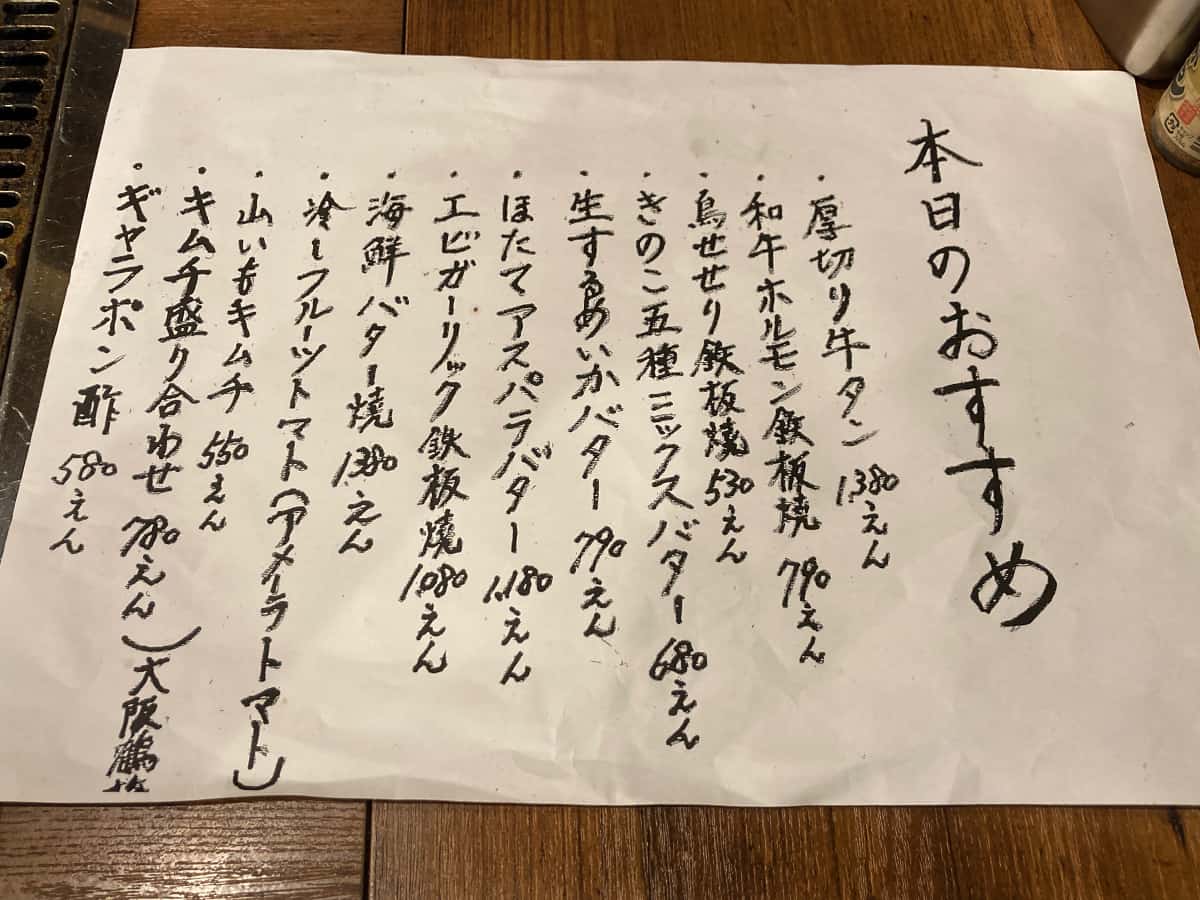 本日のおすすめ
・厚切り牛タン 1,380えん
・和牛ホルモン鉄板焼 790えん
・鳥せせり鉄板焼 530えん
・きのこ五種ミックスバター 680えん
・生するめいかバター 790えん
・ほたてアスパラバター 1,180えん
・エビガーリック鉄板焼 1,080えん
・海鮮バター焼 1,380えん
・冷しフルーツトマト(アメーラトマト)
・山いもキムチ 550えん
・キムチ盛り合わせ 780えん)大阪鶴
・ギャラポン酢 580えん